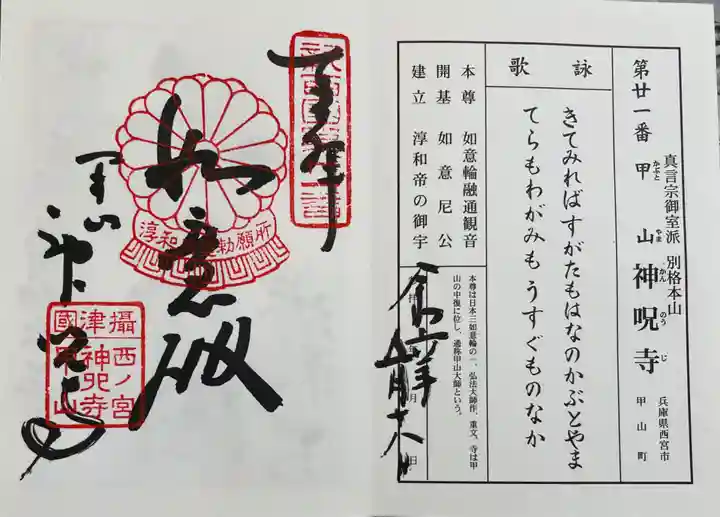 第廿一番 甲山 神呪寺
かぶと やま かんのうじ
真言宗御室派 別格本山
兵庫県西宮市
甲山町
詠歌
きてみればすがたもはなのかぶとやま
てらもわがみもうすぐものなか
本尊 如意輪融通観音
開基 如意尼公
建立 淳和帝の御宇
本尊は日本三如意輪の一、弘法大師作、重文、寺は甲
山の中復に位し、通称甲山大師という。
月
日
奉拝
如意殿
甲山
神呪寺
勅願所
攝津國
西ノ宮
神呪寺
甲山